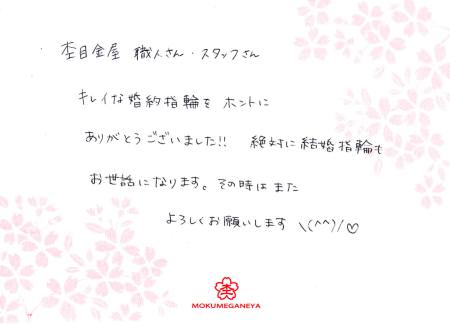 杢目金屋 職人さん・スタッフさん
キレイな婚約指輪を ホントに
ありがとうございました!! 絶対に結婚指輪も
お世話になります。その時はまた
よろしくお願いします \(^^)/♡
杢
MOKUMEGANEYA